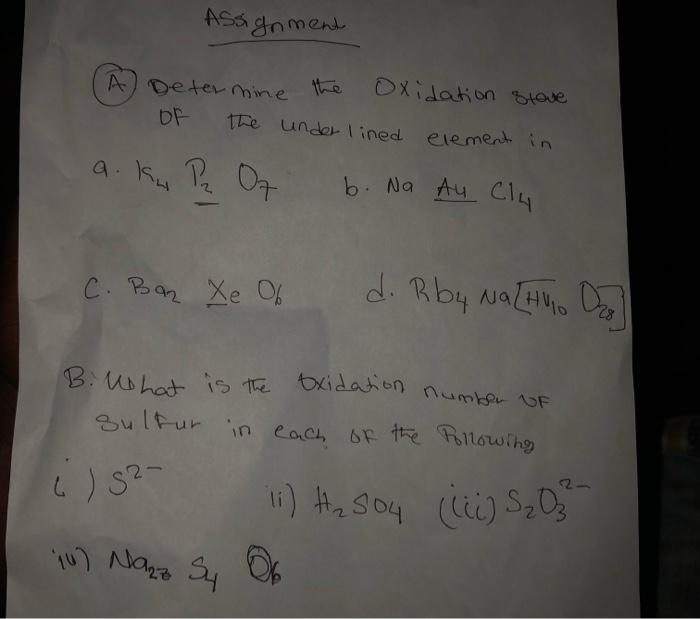 Assignment
(A) Determine the Oxidation state
OF the underlined element in
a. K4 P2 O7 b. Na Au Cl4
C. Ba2 Xe O6 d. Rb4 Na[HV10 O28]
B: What is the Oxidation number OF
Sulfur in each of the Following
i) S2- ii) H2SO4 (iii) S2O3 2-
iv) Na2 S4 O6